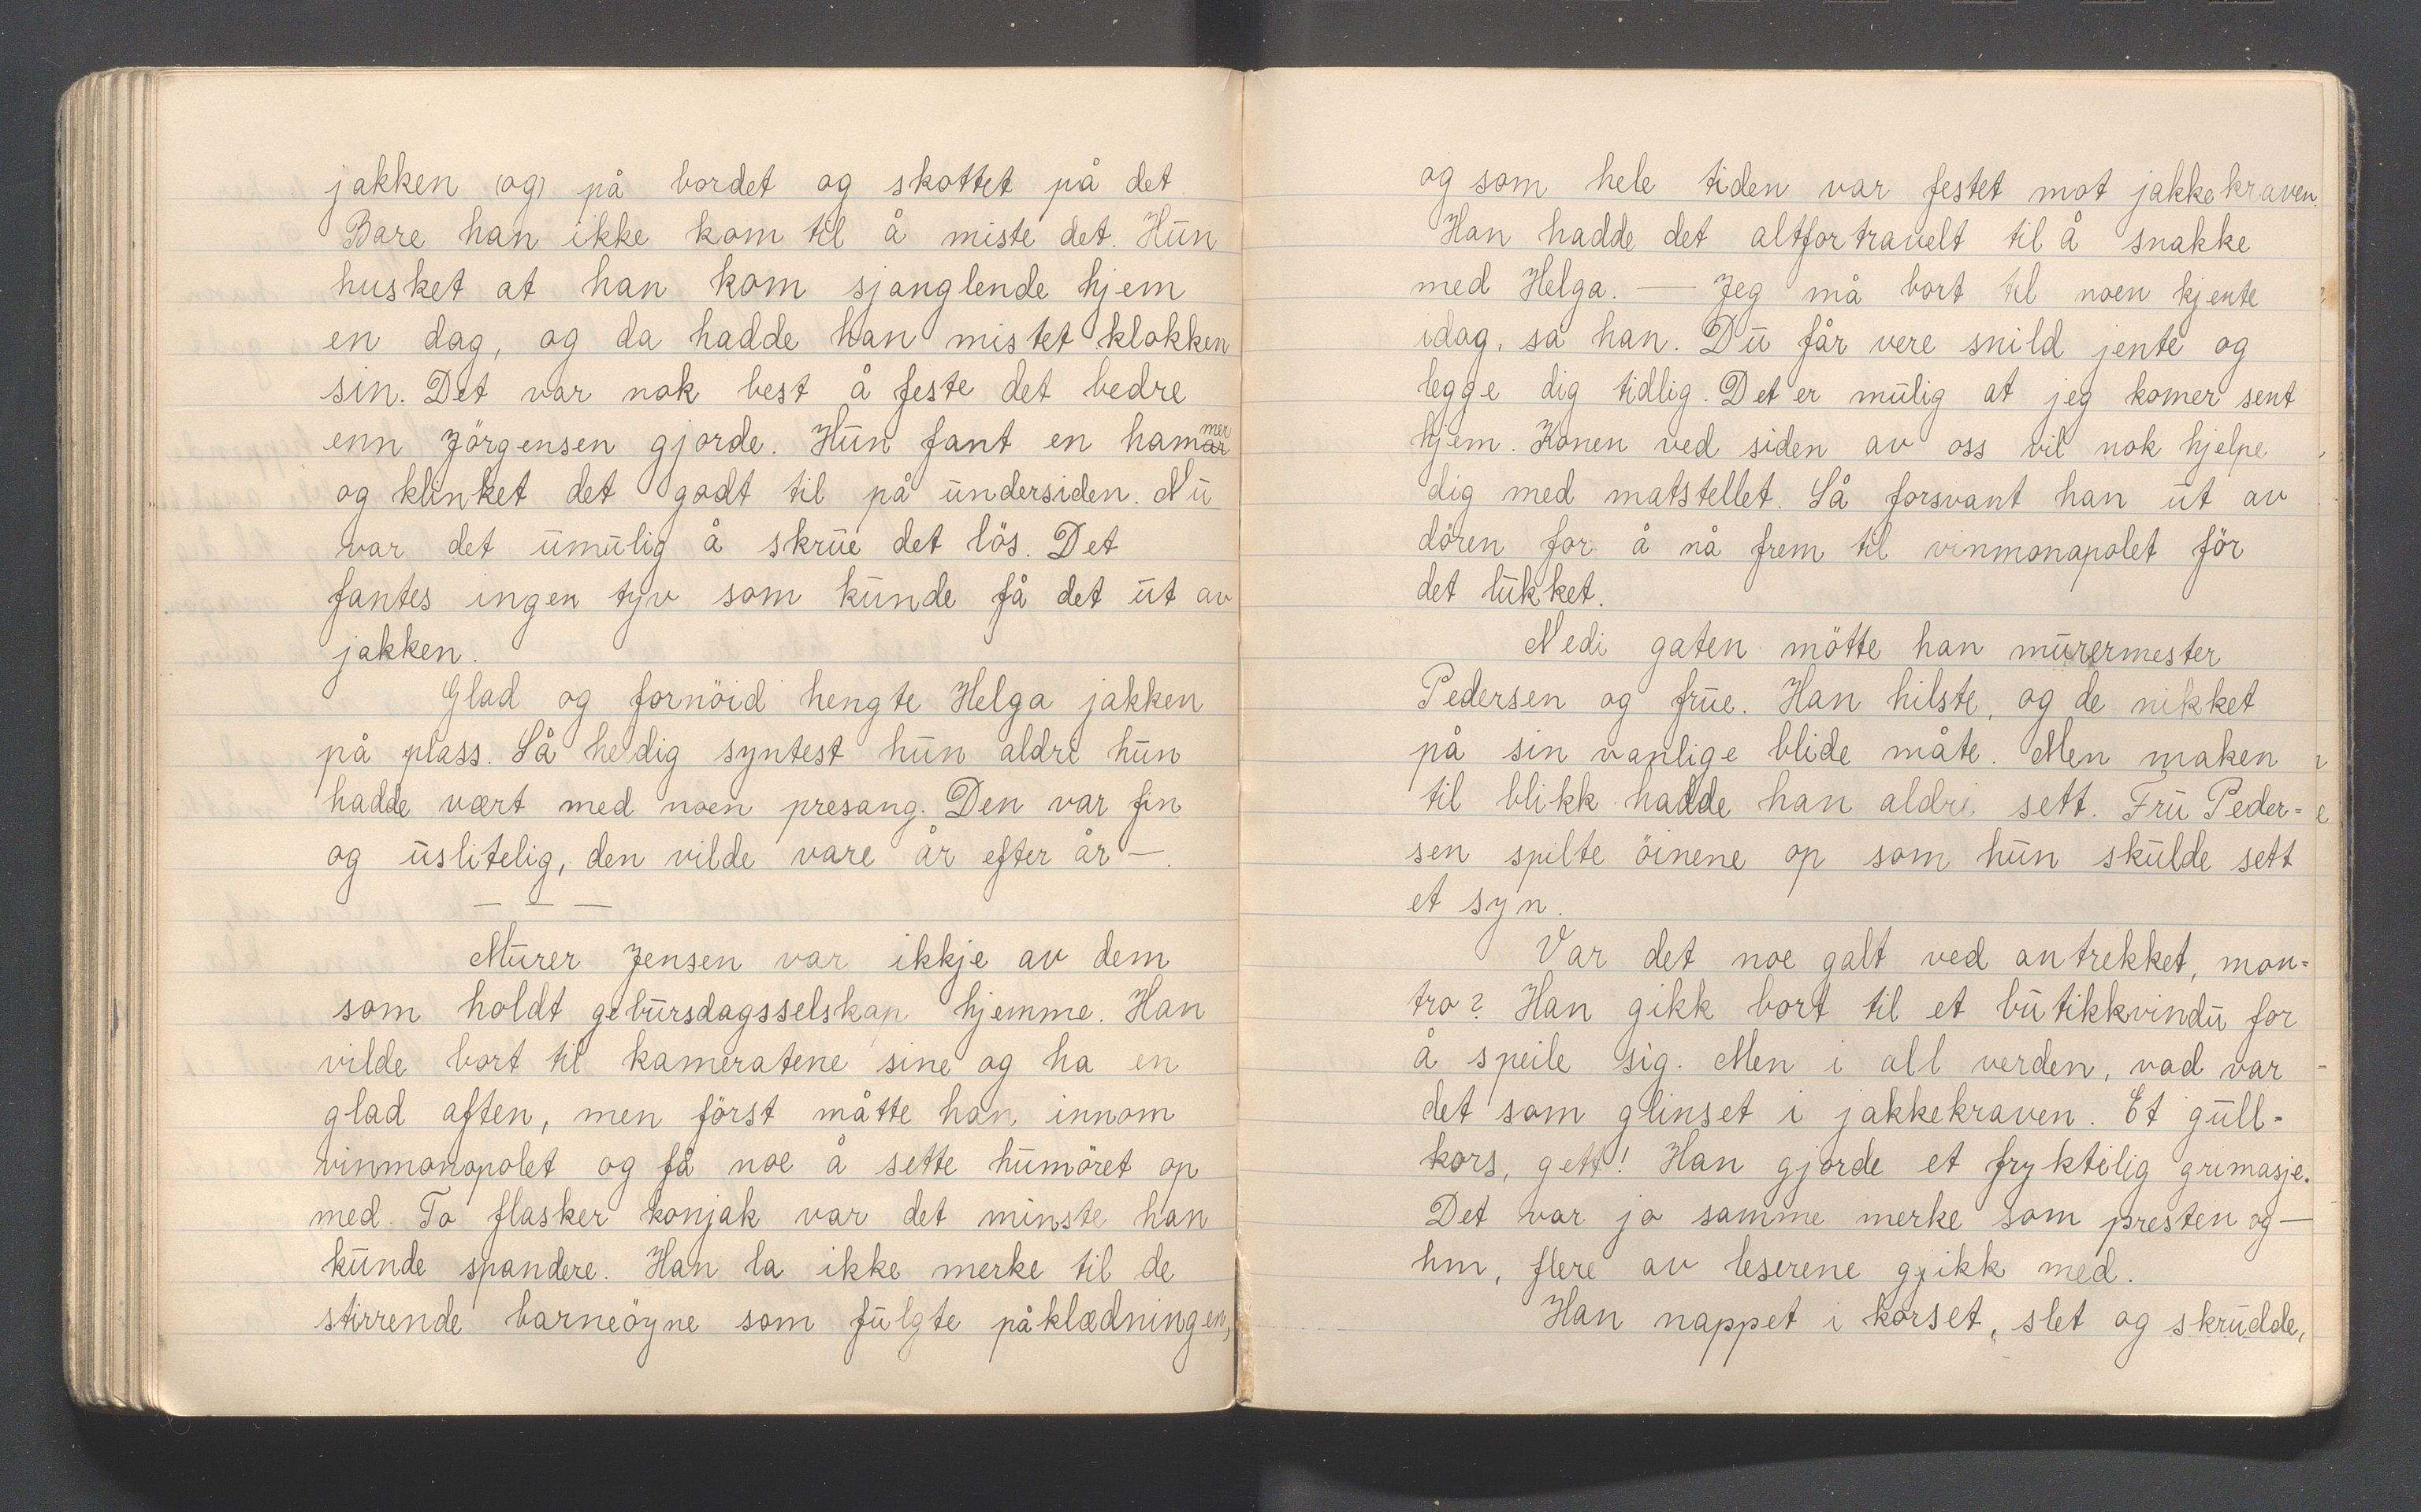 jakken (og) på bordet og skottet på det
Bare han ikke kom til å miste det. Hun
husket at han kom sjanglende hjem
en dag, og da hadde han mistet klokken
sin. Det var nok best å feste det bedre
enn Jörgensen gjorde. Hun fant en hammer
og klinket det godt til på undersiden. Nu
var det umulig å skrue det lös. Det
fantes ingen tyv som kunde få det ut av
jakken.
Glad og fornöid hengte Helga jakken
på plass. Så heldig syntest hun aldri hun
hadde vært med noen presang. Den var fin
og uslitelig, den vilde vare år efter år —.
— — —
Murer Jensen var ikkje av dem
som holdt gebursdagsselskap hjemme. Han
vilde bort til kameratene sine og ha en
glad aften, men först måtte han innom
vinmonopolet og få noe å sette humöret op
med. To flasker konjak var det minste han
kunde spandere. Han la ikke merke til de
stirrende barneöyne som fulgte påklædningen,
og som hele tiden var festet mot jakkekraven.
Han hadde det altfortravelt til å snakke
med Helga. — Jeg må bort til noen kjente
idag, sa han. Du får vere snild jente og
legge dig tidlig. Det er mulig at jeg komer sent
hjem. Konen ved siden av oss vil nok hjelpe
dig med matstellet. Så forsvant han ut av
dören for å nå frem til vinmonapolet för
det lukket.
Nedi gaten mötte han murermester
Pedersen og frue. Han hilste, og de nikket
på sin vanlige blide måte. Men maken
til blikk hadde han aldri sett. Fru Peder=
sen spilte öinene op som hun skulde sett
et syn.
Var det noe galt ved antrekket, mon=
tro? Han gikk bort til et butikkvindu for
å speile sig. Men i all verden, vad var
det som glinset i jakkekraven. Et gull-
kors, gett! Han gjorde et fryktelig grimasje.
Det var jo samme merke som presten og—
hm, flere av leserene gjikk med.
Han nappet i korset, slet og skrudde,